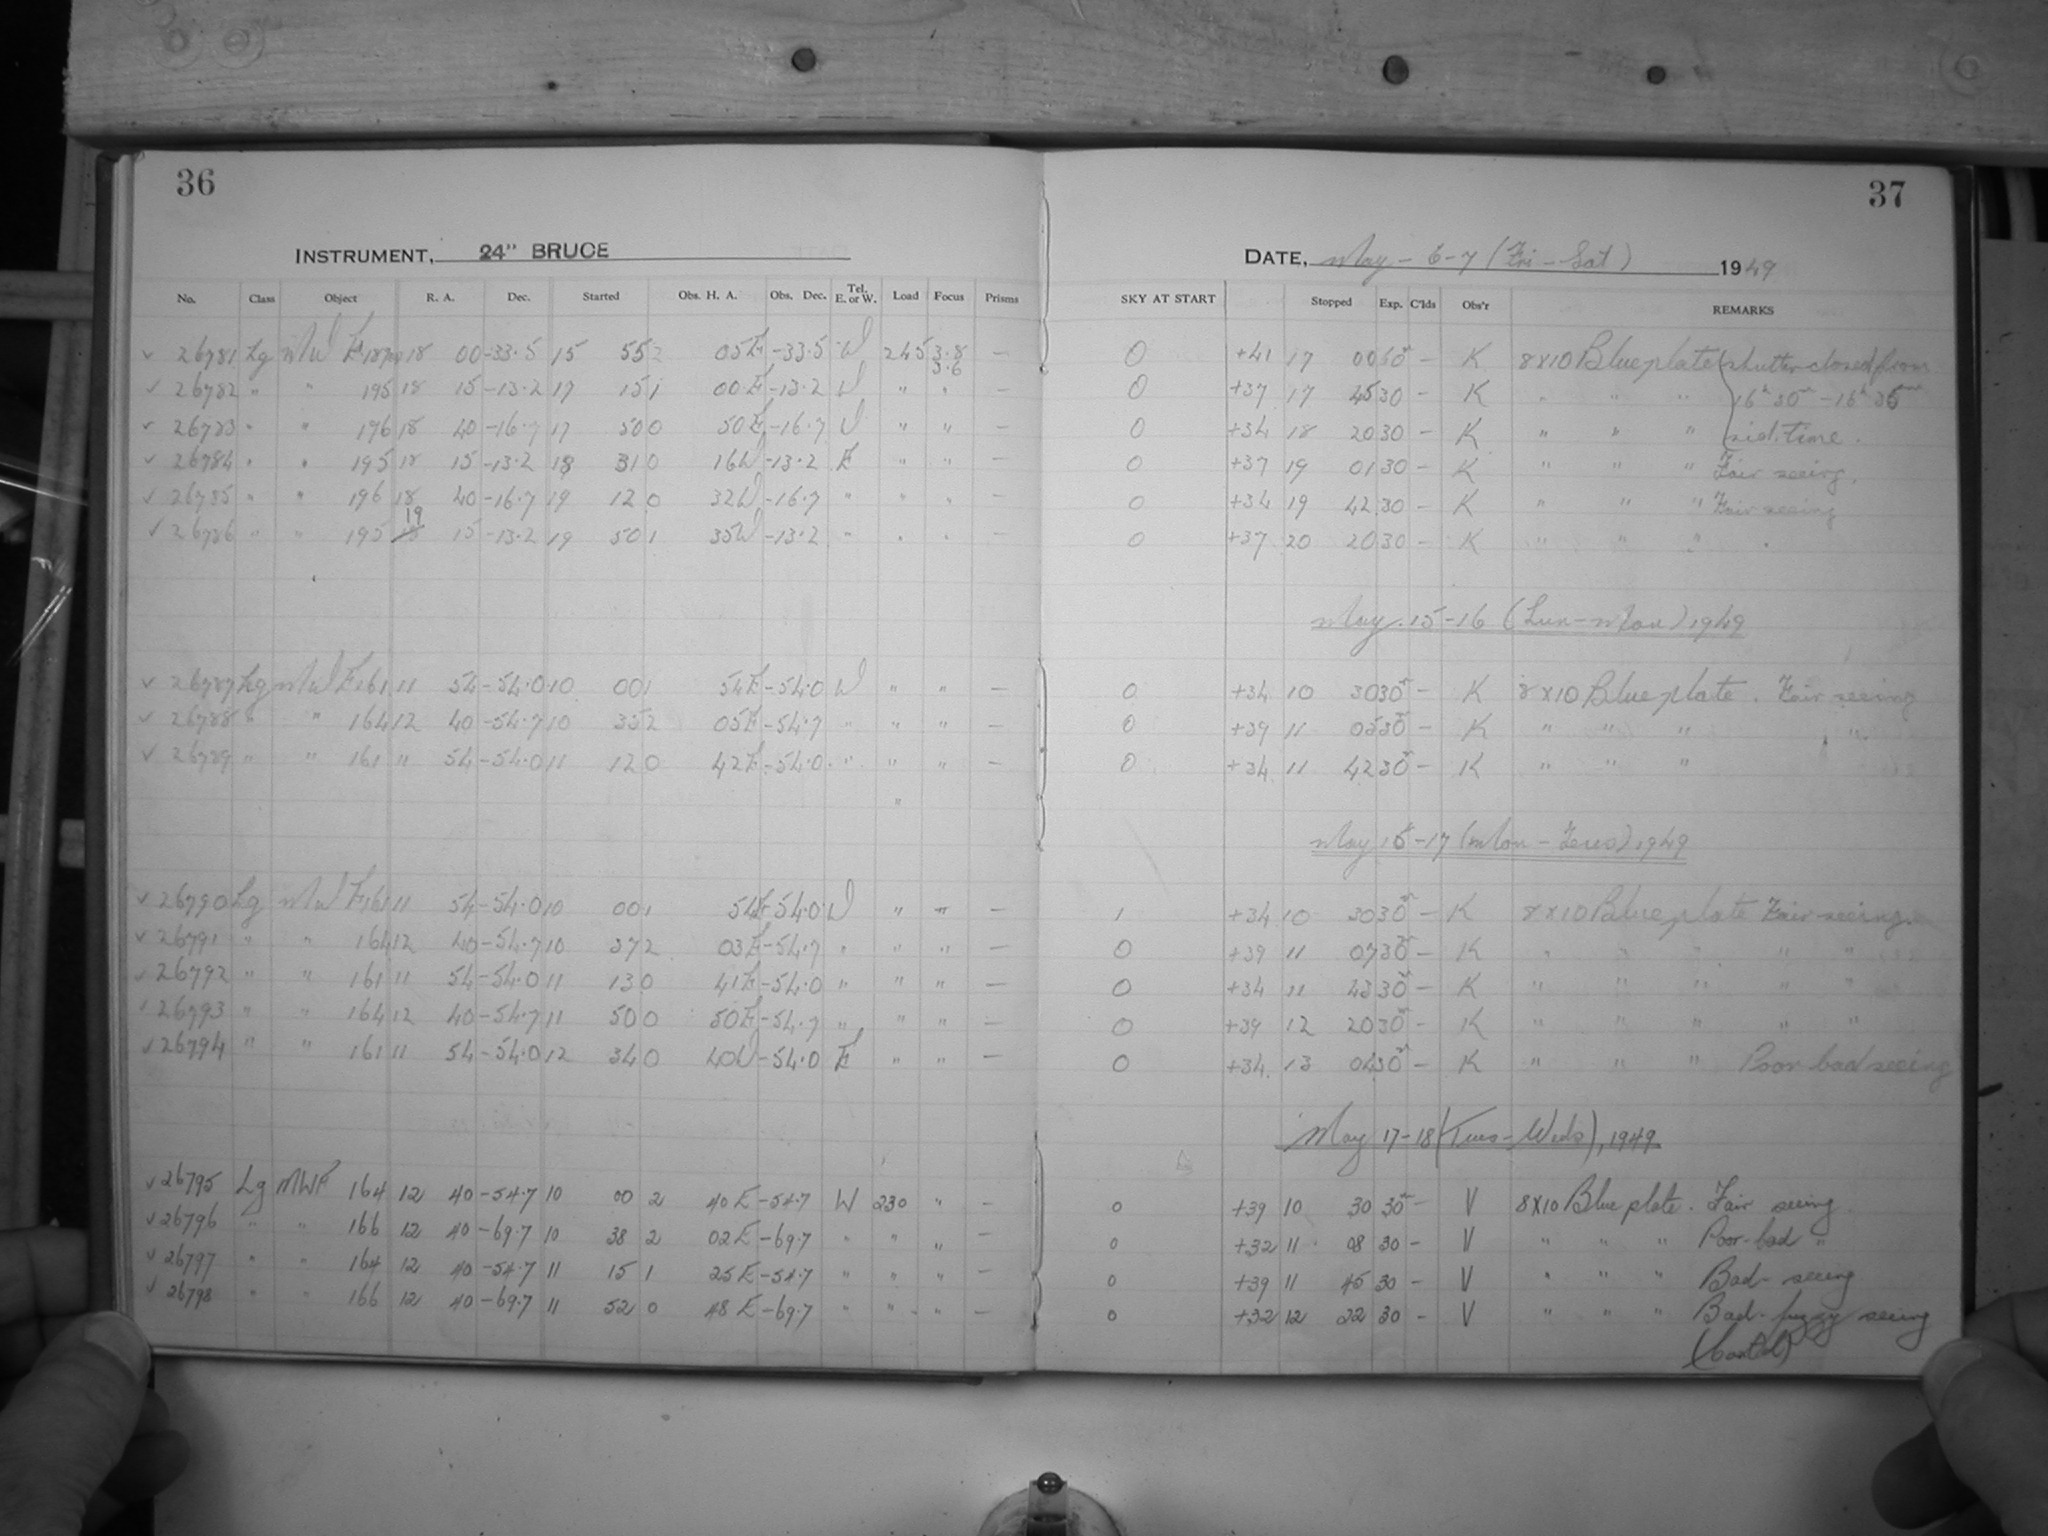 36
37
INSTRUMENT, 24" BRUCE
DATE, May - 6-7 (Fri - Sat) 1949
No. Class Object R. A. Dec. Started Obs. H. A. Obs. Dec. Tel. E. or W. Load Focus Prisms SKY AT START Stopped Exp. C'lds Obs'r REMARKS
✓ 26781 Lg MWF 18 00 -33.5 15 55 2 05 E -33.5 W 245 3.8 3.6 — 0 +41 17 00 60m — K 8x10 Blue plate (shutter closed from
✓ 26782 " " 195 18 15 -13.2 17 15 1 00 E -13.2 W " " — 0 +37 17 45 30 — K " " " 16h 30m - 16h 35m
✓ 26783 " " 196 18 40 -16.7 17 50 0 50 E -16.7 W " " — 0 +34 18 20 30 — K " " " sid. time.
✓ 26784 " " 195 18 15 -13.2 18 31 0 16 W -13.2 E " " — 0 +37 19 01 30 — K " " " Fair seeing.
✓ 26785 " " 196 18 40 -16.7 19 12 0 32 W -16.7 " " " — 0 +34 19 42 30 — K " " " Fair seeing
✓ 26786 " " 195 19 15 -13.2 19 50 1 35 W -13.2 " " " — 0 +37 20 20 30 — K " " "
May. 15-16 (Sun-Mon) 1949
✓ 26787 Lg MWF 161 11 54 -54.0 10 00 1 54 E -54.0 W " " — 0 +34 10 30 30m — K 8x10 Blue plate. Fair seeing
✓ 26788 " " 164 12 40 -54.7 10 35 2 05 E -54.7 " " " — 0 +39 11 05 30m — K " " " "
✓ 26789 " " 161 " 54 -54.0 11 12 0 42 E -54.0 " " " — 0 +34 11 42 30m — K " " "
"
May 16-17 (Mon - Tues) 1949
✓ 26790 Lg MWF 161 11 54 -54.0 10 00 1 54 E -54.0 W " " — 1 +34 10 30 30m — K 8x10 Blue plate Fair seeing.
✓ 26791 " " 164 12 40 -54.7 10 37 2 03 E -54.7 " " " — 0 +39 11 07 30m — K " " " " "
✓ 26792 " " 161 11 54 -54.0 11 13 0 41 E -54.0 " " " — 0 +34 11 43 30m — K " " " " "
✓ 26793 " " 164 12 40 -54.7 11 50 0 50 E -54.7 " " " — 0 +39 12 20 30m — K " " " " "
✓ 26794 " " 161 11 54 -54.0 12 34 0 40 W -54.0 E " " — 0 +34 13 04 30m — K " " " Poor bad seeing
May 17-18 (Tues-Weds), 1949
✓ 26795 Lg MWF 164 12 40 -54.7 10 00 2 40 E -54.7 W 230 " — 0 +39 10 30 30m — V 8x10 Blue plate. Fair seeing.
✓ 26796 " " 166 12 40 -69.7 10 38 2 02 E -69.7 " " " — 0 +32 11 08 30 — V " " " Poor-bad "
✓ 26797 " " 164 12 40 -54.7 11 15 1 25 E -54.7 " " " — 0 +39 11 45 30 — V " " " Bad- seeing
✓ 26798 " " 166 12 40 -69.7 11 52 0 48 E -69.7 " " " — 0 +32 12 22 30 — V " " " Bad- fuzzy seeing
(Cont'd)